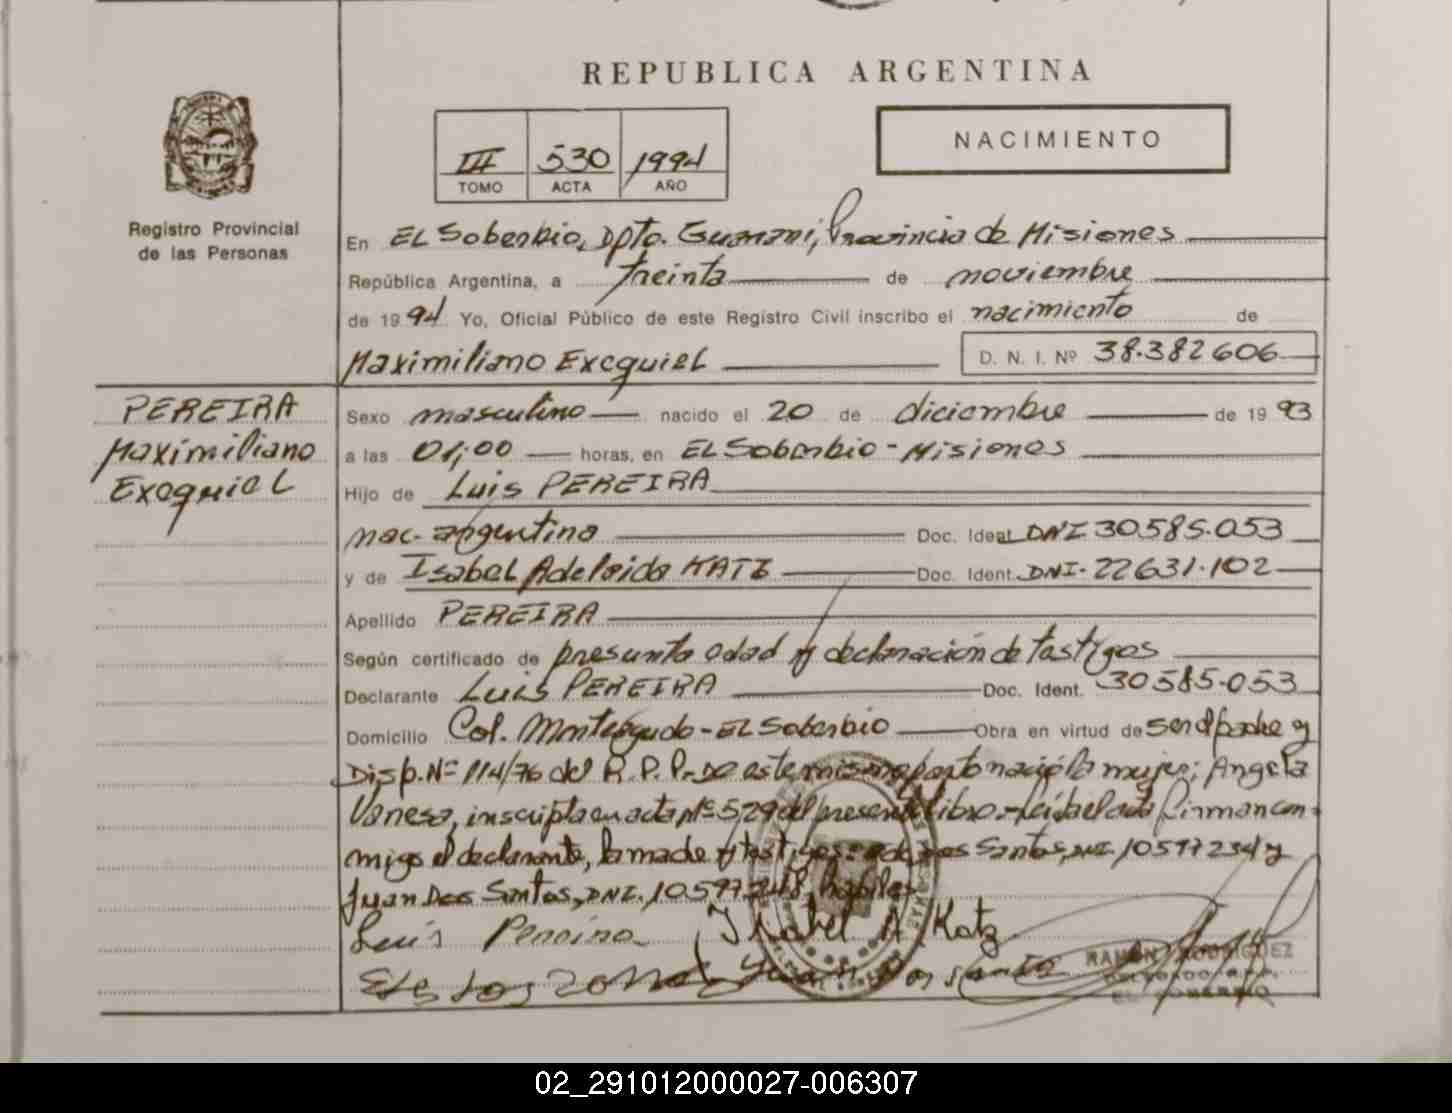 REPUBLICA ARGENTINA
NACIMIENTO
III 530 1994
TOMO ACTA AÑO
Registro Provincial
de las Personas
En El Soberbio, Dpto. Guaraní, Provincia de Misiones
República Argentina, a treinta de noviembre
de 1994 Yo, Oficial Público de este Registro Civil inscribo el nacimiento de
Maximiliano Exequiel D. N. I. Nº 38.382606
PEREIRA
Maximiliano
Exequiel
Sexo masculino nacido el 20 de diciembre de 1993
a las 01,00 horas, en El Soberbio - Misiones
Hijo de Luis PEREIRA
nac. argentina Doc. Ident. DNI 30.585.053
y de Isabel Adelaida KATZ Doc. Ident. DNI. 22631.102
Apellido PEREIRA
Según certificado de presunta edad y declaración de testigos
Declarante Luis PEREIRA Doc. Ident. 30585.053
Domicilio Col. Monteagudo - El Soberbio Obra en virtud de ser el padre y
Disp. Nº 114/76 del R.P.P. - De este mismo parto nació la mujer; Angela
Vanesa, inscripta en acta Nº 529 del presente libro. - Leída el acta firman con-
migo el declarante, la madre y testigos: Dos Santos, DNI. 10597234 y
Juan Dos Santos, DNI. 10.597.248, hábiles
Luis Pereira Isabel A Katz
Juan Dos Santo
RAMON RODRIGUEZ
EL SOBERBIO
02_291012000027-006307